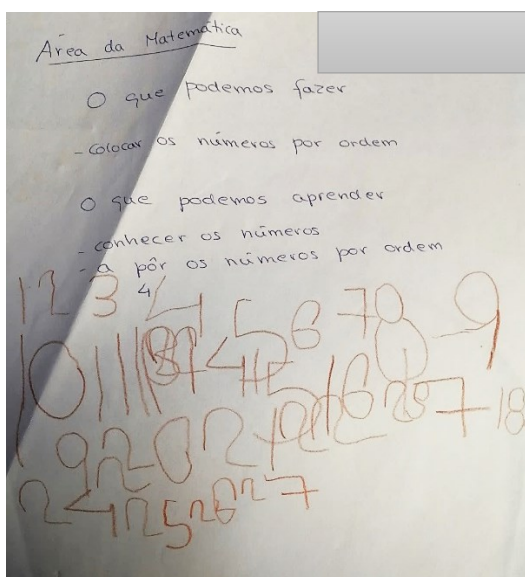 Área da Matemática
O que podemos fazer
- Colocar os números por ordem
O que podemos aprender
- conhecer os números
- a pôr os números por ordem
1 2 3 4 5 6 7 8 9
4
10 11
19 20 18
24 25 26 27